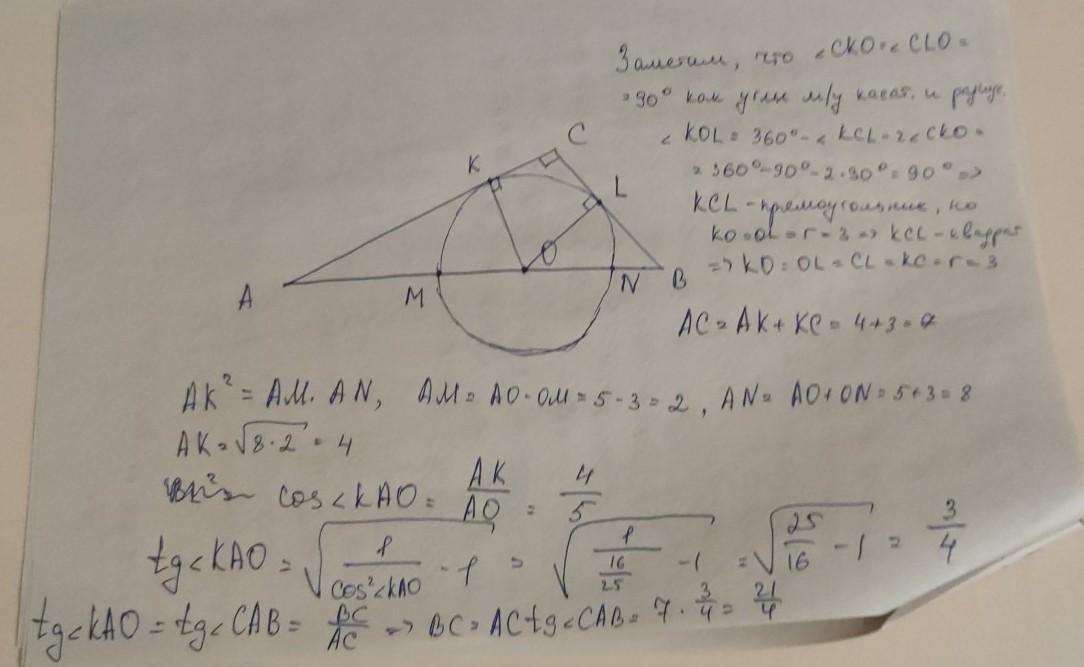 Заметим, что ∠CKO = ∠CLO =
= 90° как углы м/у касат. и радиус.
∠KOL = 360° - ∠KCL - 2∠CKO =
= 360° - 90° - 2·90° = 90° =>
KCL - прямоугольник, но
KO = OL = r = 3 => KCL - квадрат
=> KO = OL = CL = KC = r = 3
AC = AK + KC = 4 + 3 = 7
C
K
L
O
A
M
N
B
AK² = AM · AN, AM = AO - OM = 5 - 3 = 2, AN = AO + ON = 5 + 3 = 8
AK = √(8·2) = 4
cos∠KAO = AK/AO = 4/5
tg∠KAO = √(1/cos²∠KAO - 1) = √(1/(16/25) - 1) = √(25/16 - 1) = 3/4
tg∠KAO = tg∠CAB = BC/AC => BC = AC tg∠CAB = 7 · 3/4 = 21/4